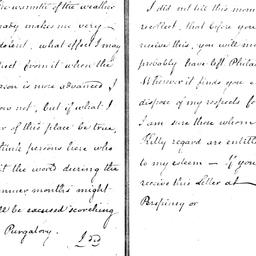 the warmth of the weather
already makes me very
indolent, what effect I may
expect from it when the
season is more advanced I
know not, but if what I
hear of this place be true,
I think persons here who
wait the word during the
summer months might
well be excused scorching
Purgatory.
I did not till this moment
recollect, that before you
receive this, you will most
probably have left Philad
Wherever it finds you
dispose of my respects to
I am sure those whom
Kitty regard are entitled
to my esteem — If you
receive this letter at
Perkiny or